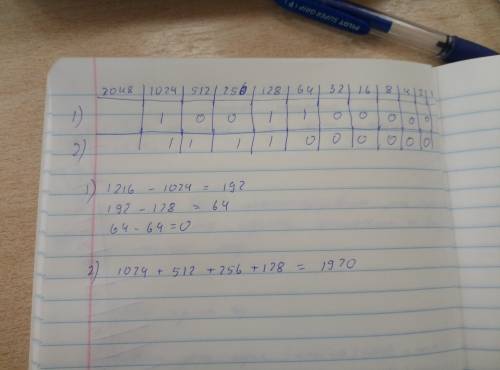 PILOT SUPER GRIP (F)
2048 1024 512 256 128 64 32 16 8 4 2 1
1) 1 0 0 1 1 0 0 0 0 0 0
2) 1 1 1 1 0 0 0 0 0 0 0
1) 1216 - 1024 = 192
192 - 128 = 64
64 - 64 = 0
2) 1024 + 512 + 256 + 128 = 1920